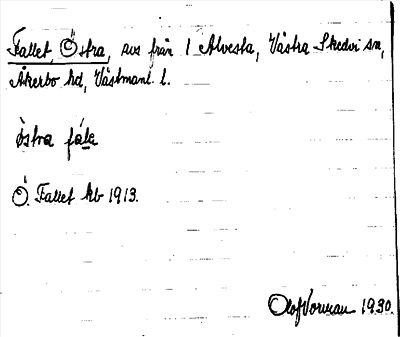 Fallet, Östra, avs från 1 Alvesta, Västra Skedvi sn,
Åkerbo hd, Västmanl. l.
östra fále
Ö. Fallet kb 1913.
Olof Vorman 1930.